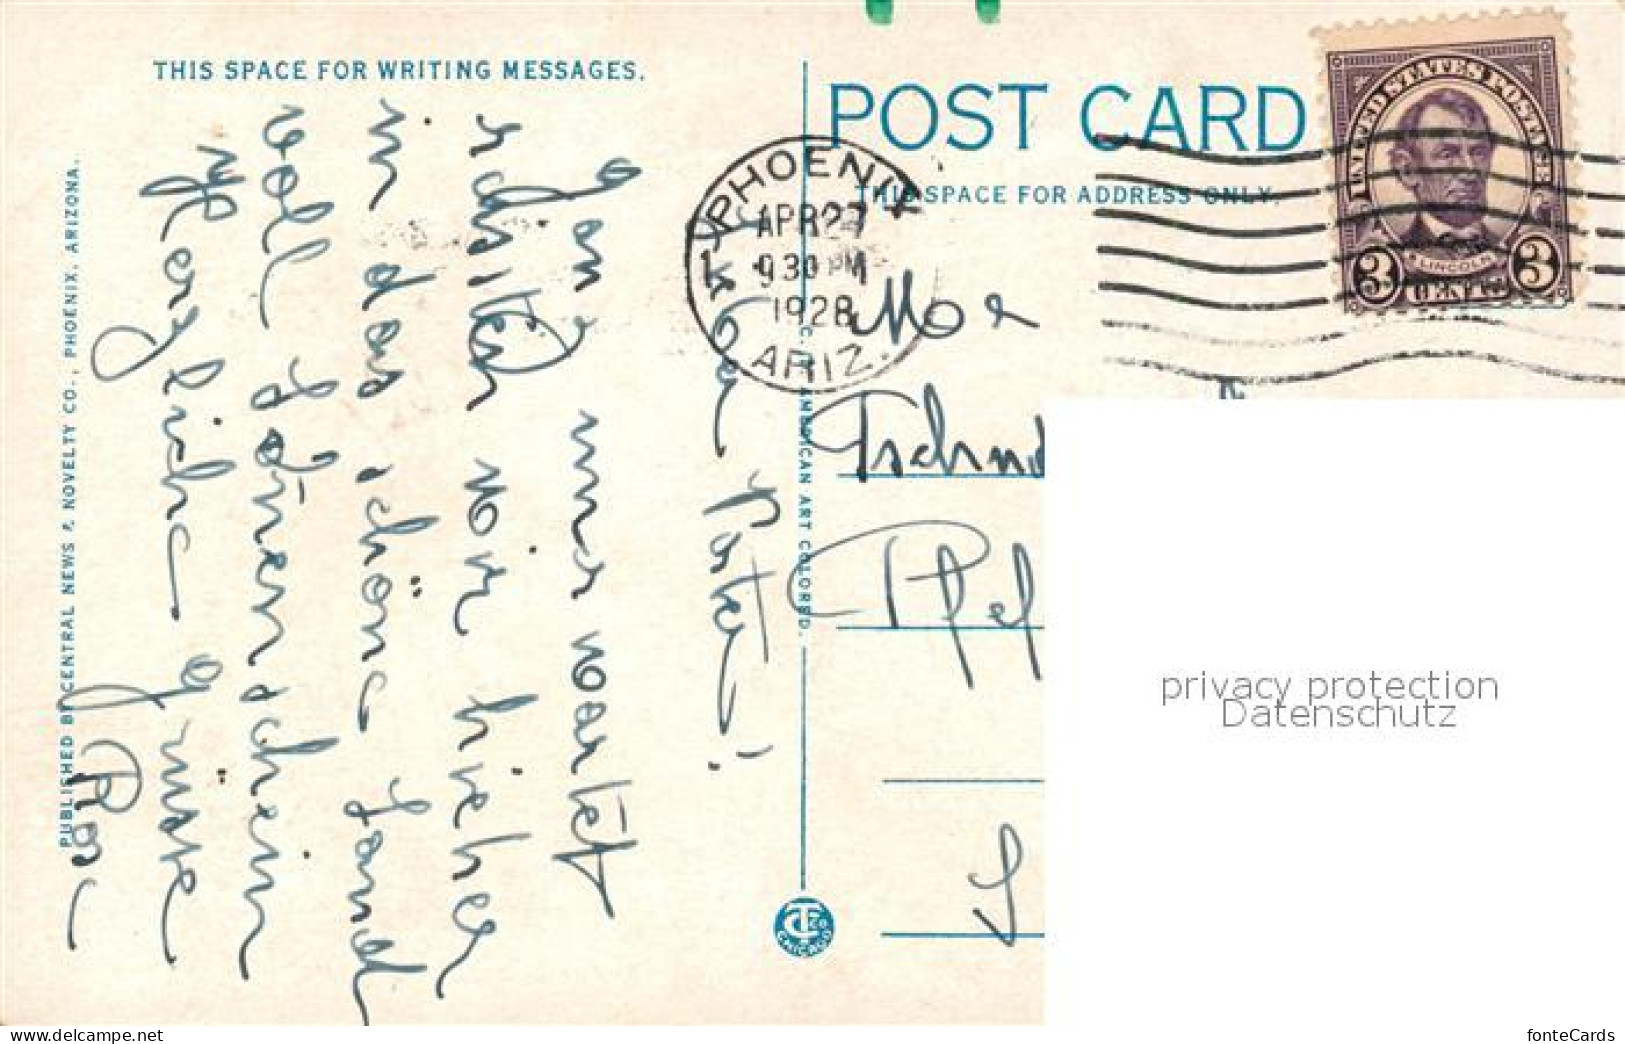 THIS SPACE FOR WRITING MESSAGES.
POST CARD
THIS SPACE FOR ADDRESS ONLY.
PHOENIX
APR 27
9 30 PM
1928
ARIZ.
UNITED STATES POSTAGE
LINCOLN
3 CENTS 3
Lieber Vater!
Ganz unerwartet
reisten wir hieher
in das schöne Land
voll Sonnenschein
Herzliche Grüsse
PUBLISHED BY CENTRAL NEWS & NOVELTY CO., PHOENIX, ARIZONA.
AMERICAN ART COLORED.
CT CO
CHICAGO
privacy protection
Datenschutz
fonteCards